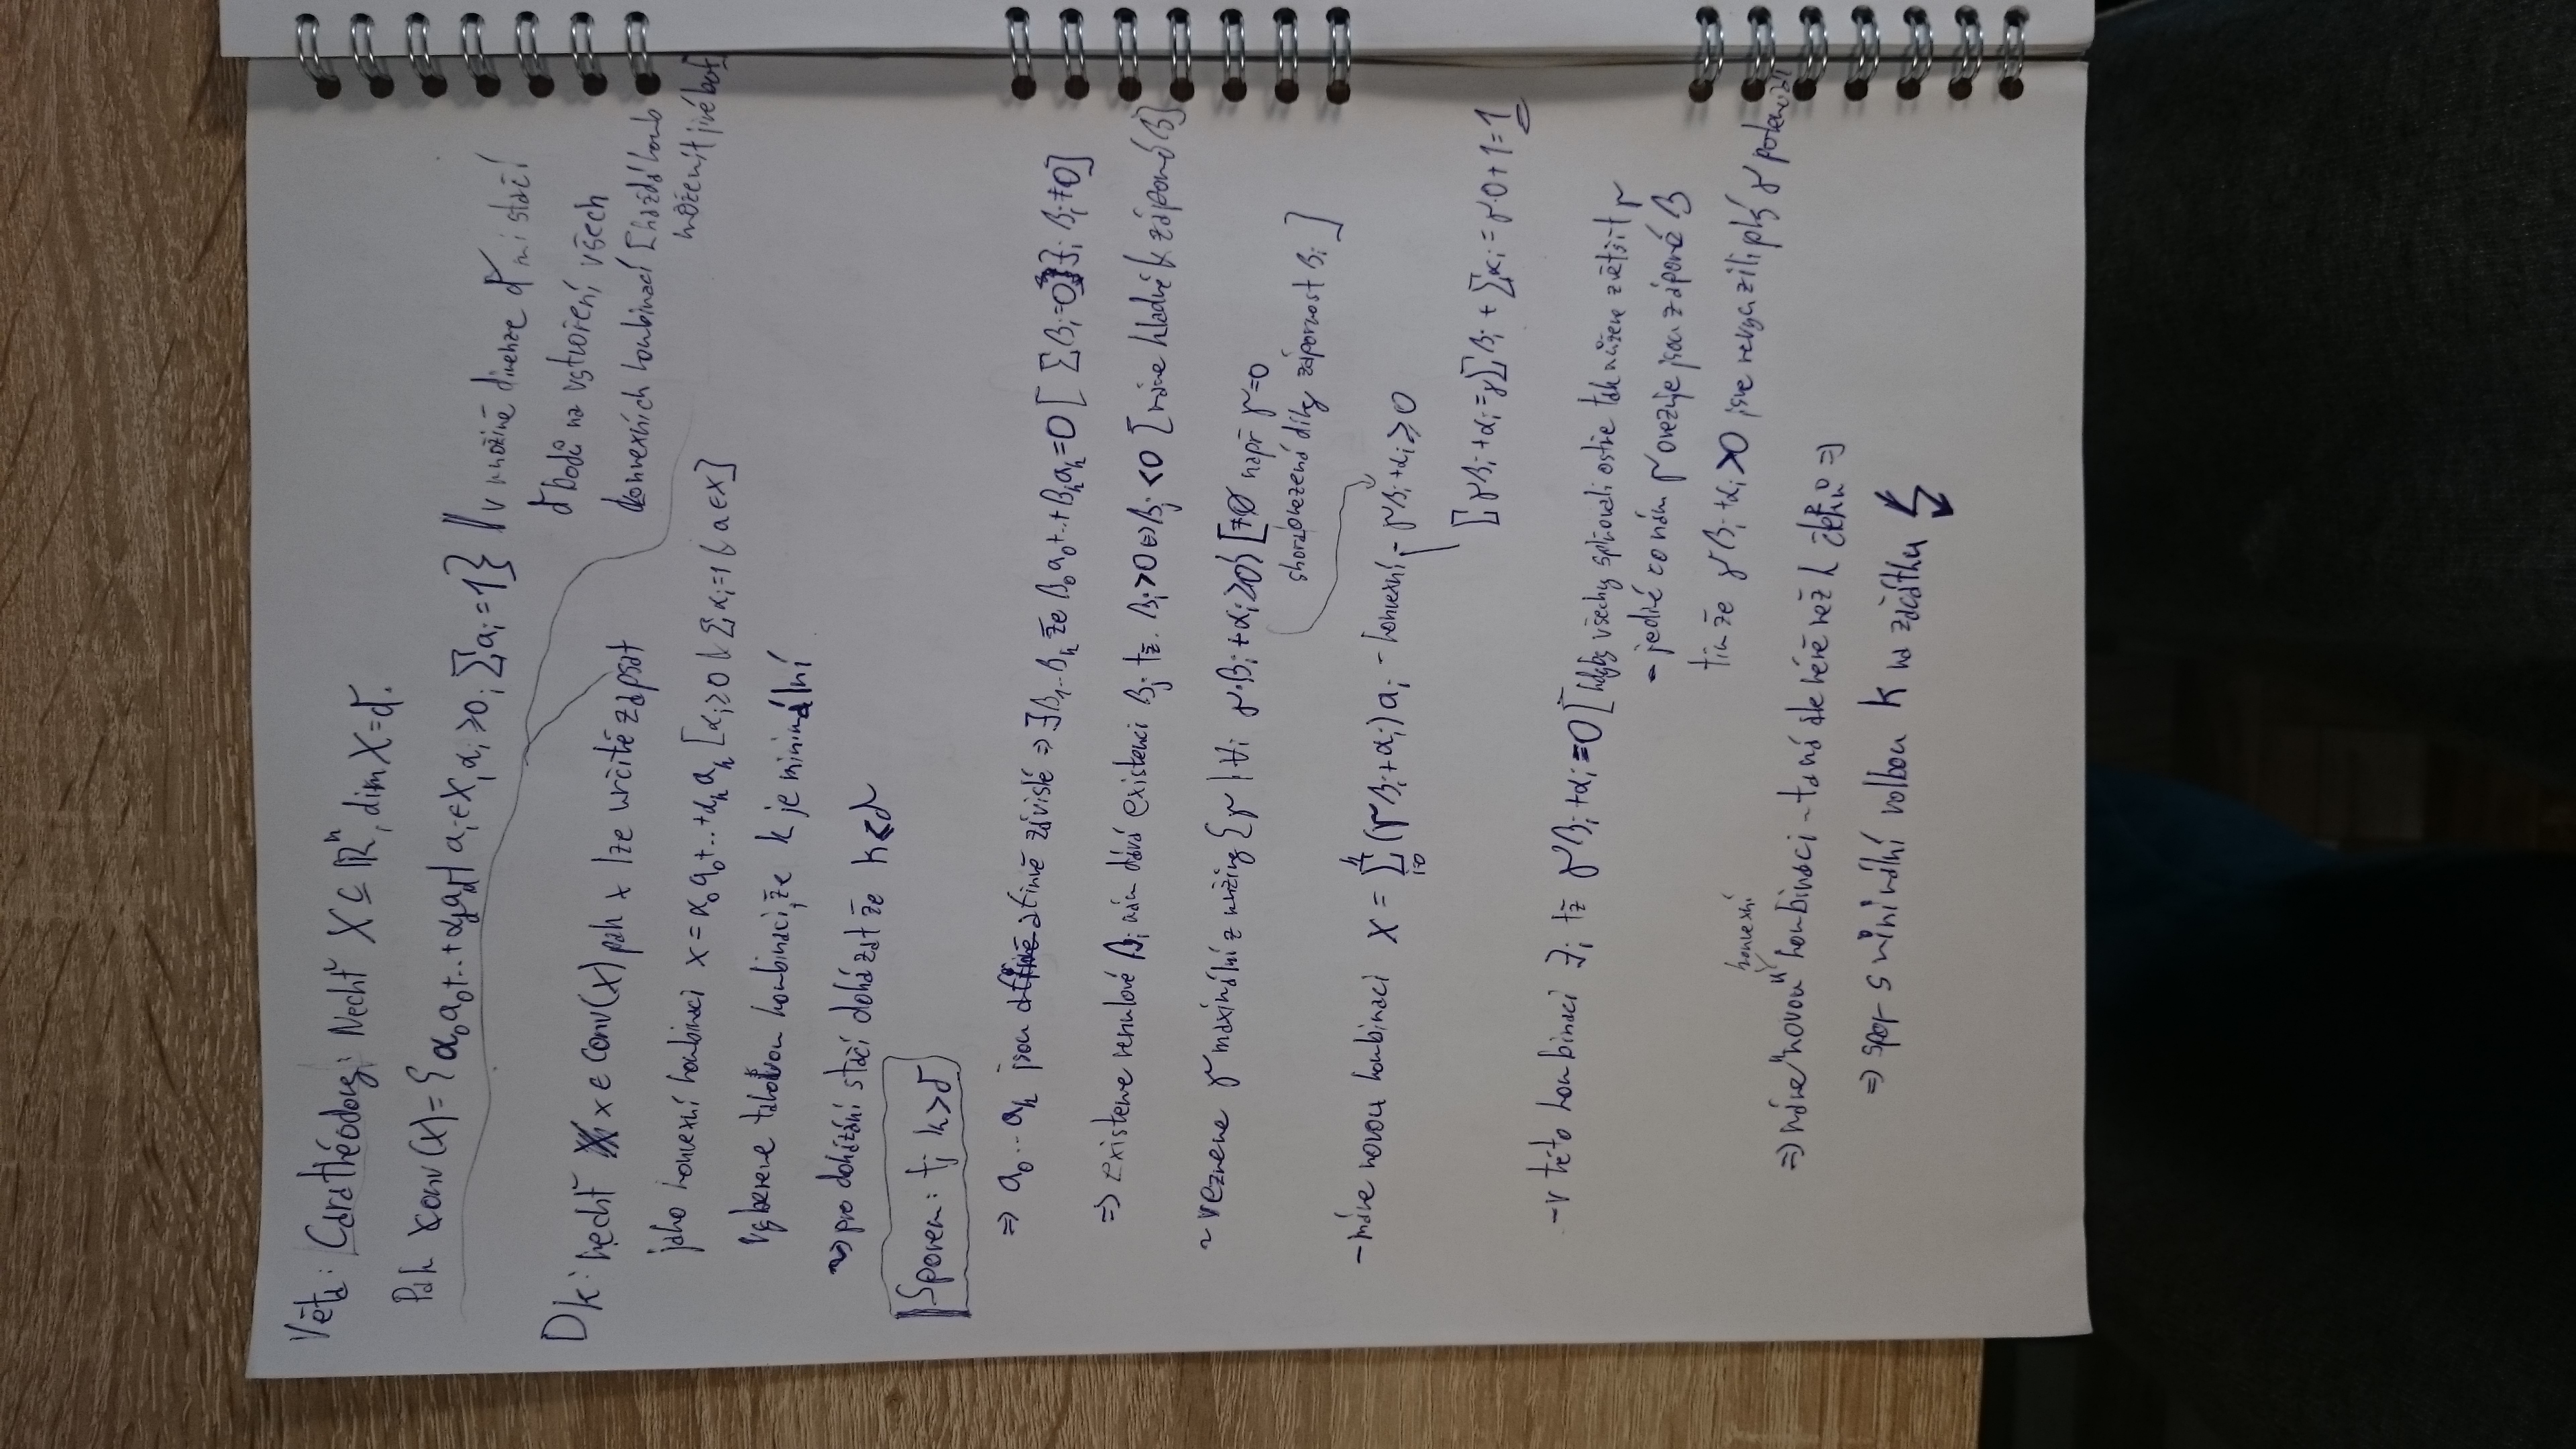 Věta: Carathéodory: Nechť X ⊆ ℝⁿ, dim X = d.
Pak conv(X) = { α₀a₀ + .. + α_d a_d | aᵢ ∈ X, αᵢ ≥ 0, Σaᵢ = 1 } // v množině dimenze d mi stačí
d bodů na vytvoření všech
konvexních kombinací [každá komb
může mít jiné body]
Dk: nechť x ∈ conv(X) pak x lze určitě zapsat
jako konvexní kombinaci x = α₀a₀ + .. + αₖaₖ [αᵢ ≥ 0 & Σαᵢ = 1 & a ∈ X]
Vybereme takovou kombinaci, že k je minimální
⇝ pro dokázání stačí dokázat že k ≤ d
Sporem: tj k > d
⇒ a₀ .. aₖ jsou afinně závislé ⇒ ∃ β₁ .. βₖ že β₀a₀ + .. + βₖaₖ = 0 [Σβᵢ = 0, ∃ᵢ βᵢ ≠ 0]
⇒ existence nenulové βᵢ nám dává existenci βⱼ tž. βᵢ > 0 ⇔ βⱼ < 0 [máme kladné & záporné β]
~ vezmeme γ maximální z množiny {γ | ∀ᵢ γ·βᵢ + αᵢ ≥ 0} [≠ ∅ např γ = 0
shora omezená díky zápornost βᵢ]
- máme novou kombinaci x = Σᵢ₌₀ᵏ (γβᵢ + αᵢ) aᵢ - konvexní - γβᵢ + αᵢ ≥ 0
Σ γβᵢ + αᵢ = γΣβᵢ + Σαᵢ = γ·0 + 1 = 1
- v této kombinaci ∃ᵢ tž γβᵢ + αᵢ = 0 [kdyby všechny splňovali ostře tak můžeme zvětšit γ
- jediné co nám γ omezuje jsou záporné β
tím že γβᵢ + αᵢ > 0 jsme nevyužili plný γ
konvexní
⇒ máme "novou" kombinaci - ta má ale méně než k členů ⇒
⇒ spor s minimální volbou k na začátku ↯